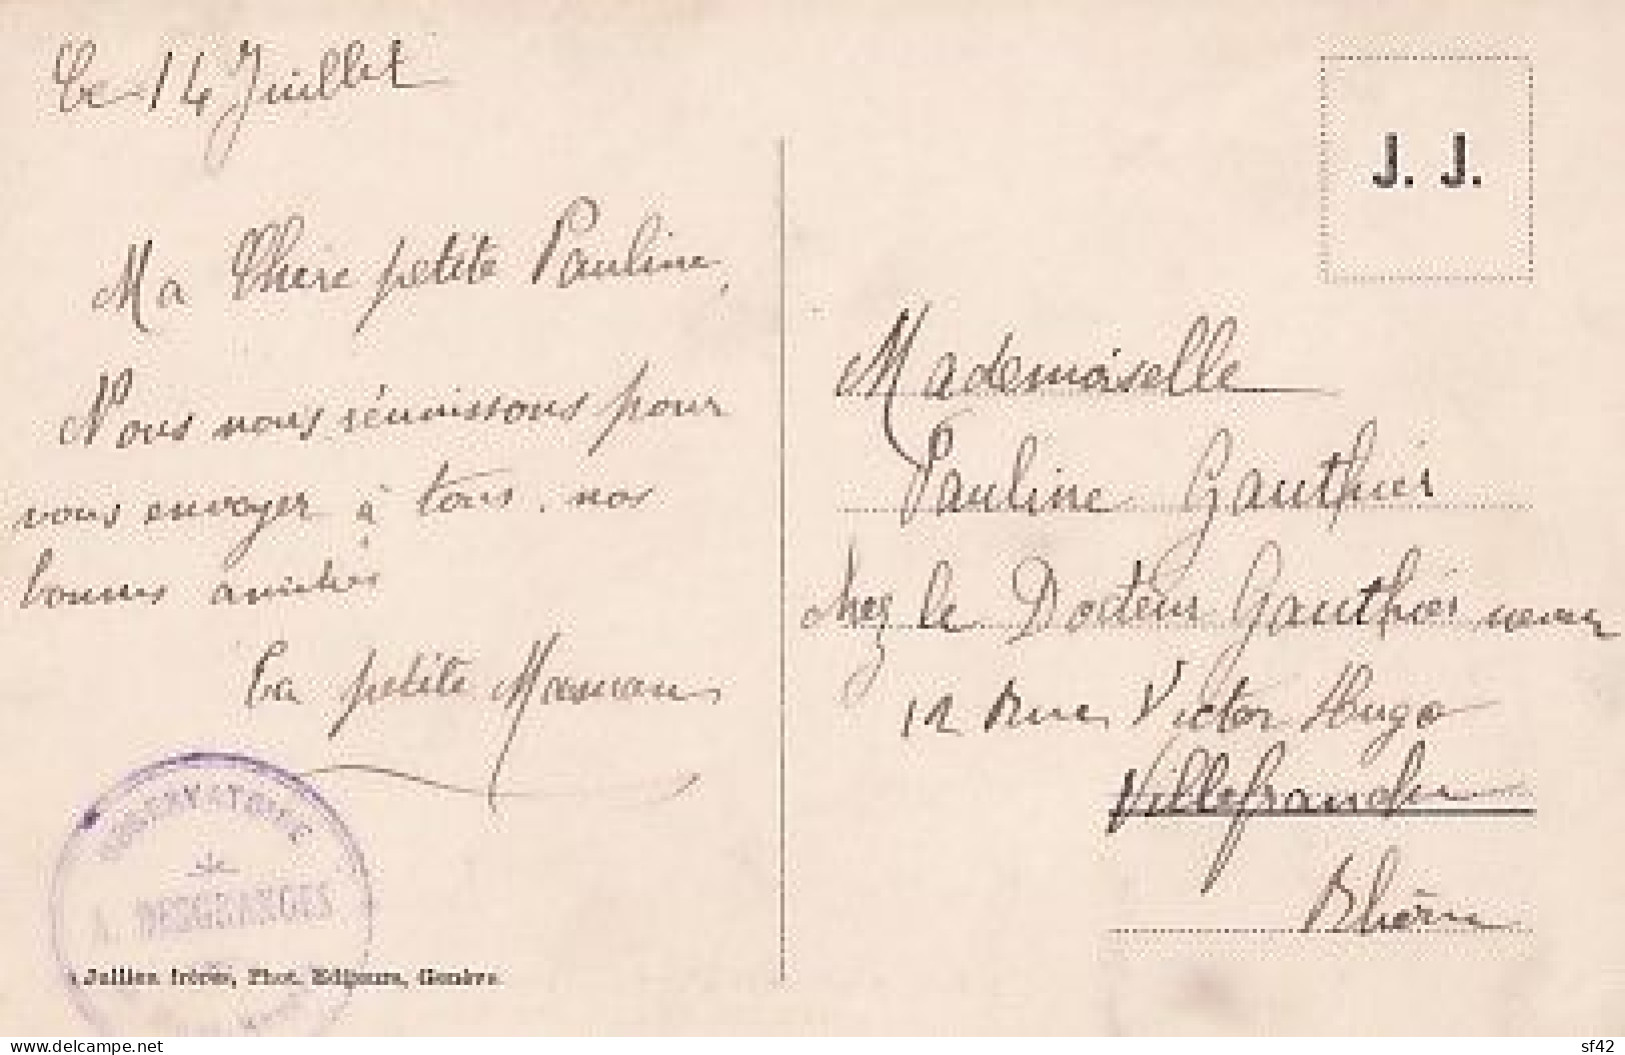 Le 14 Juillet
Ma Chère petite Pauline,
Nous nous réunissons pour
vous envoyer à tous, nos
bonnes amitiés
La petite Maman
OBSERVATOIRE
A. DESGRANGES
Jullien frères, Phot. Editeurs, Genève
J. J.
Mademoiselle
Pauline Gauthier
chez le Docteur Gauthier neveu
12 Rue Victor Hugo
Villefranche
Rhône
www.delcampe.net
sf42